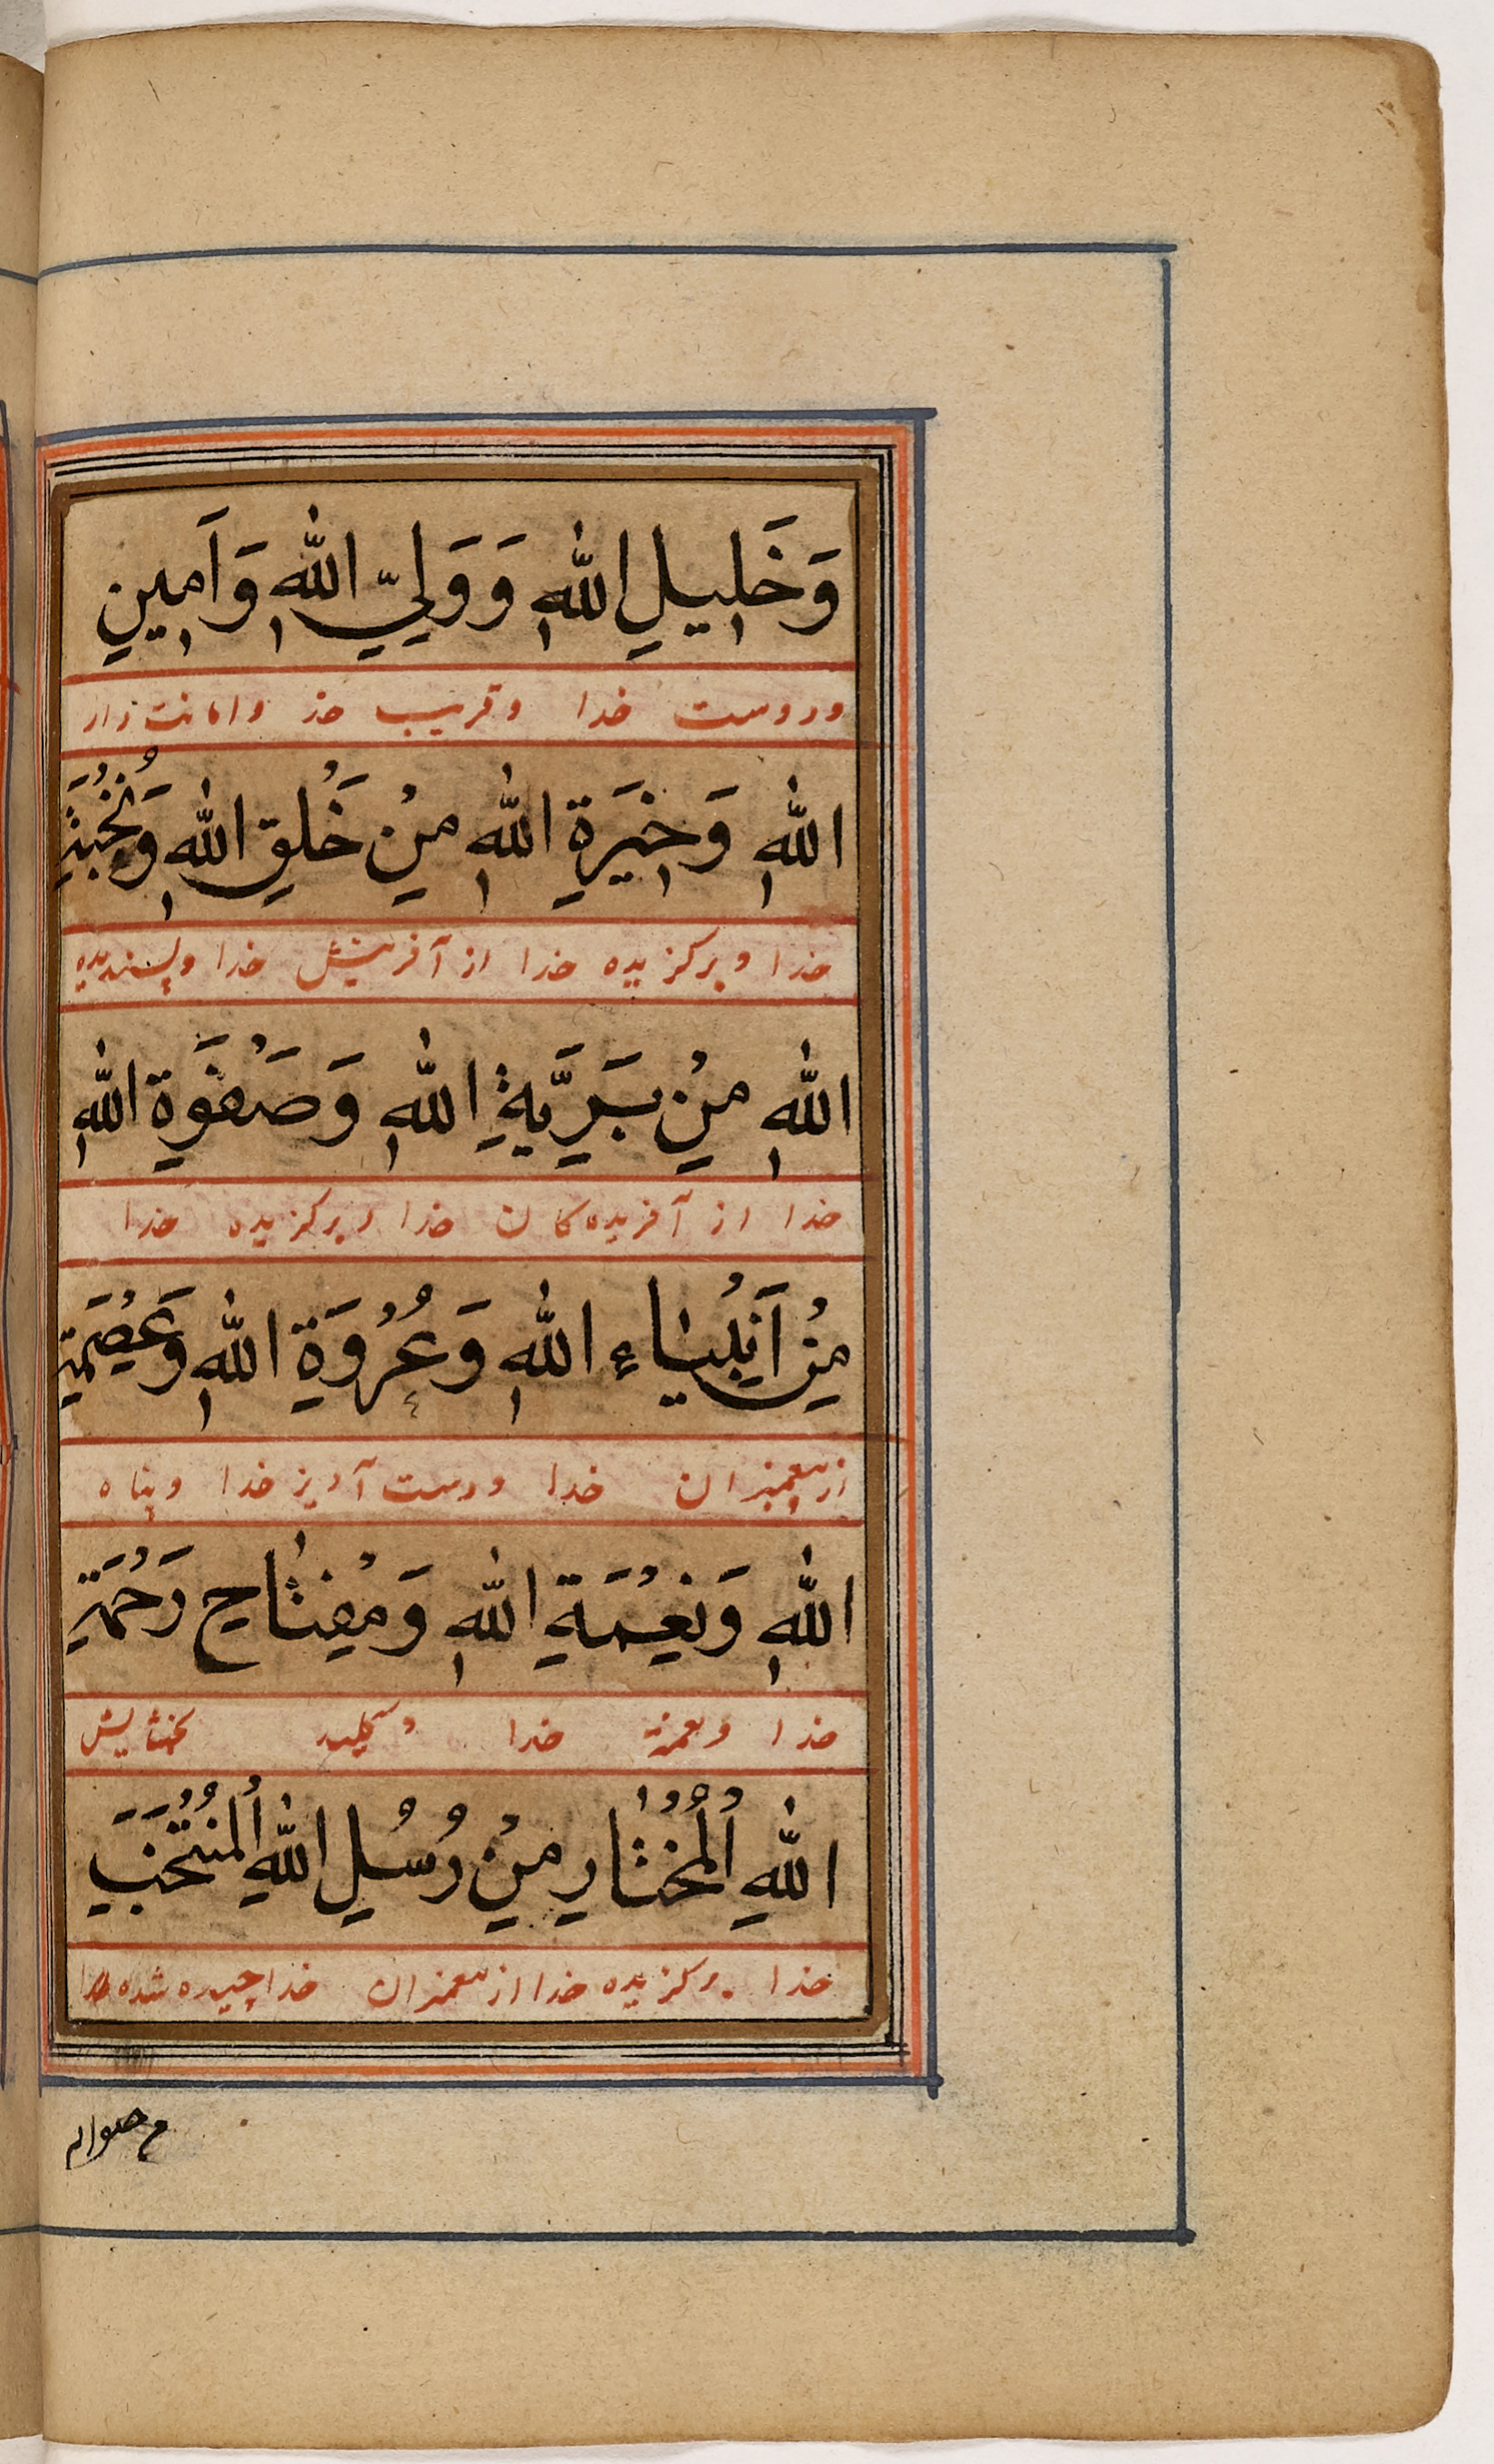 وَخَلِيلِ اللهِ وَوَلِيِّ اللهِ وَاَمِينِ
ودوست خدا وقریب خد وامانت دار
اللهِ وَخِيَرَةِ اللهِ مِنْ خَلْقِ اللهِ وَنُخْبَةِ
خدا وبرکزیده خدا از آفرینش خدا وپسندیده
اللهِ مِنْ بَرِيَّةِ اللهِ وَصَفْوَةِ اللهِ
خدا از آفریده کان خدا وبرکزیده خدا
مِنْ اَنْبِيَاءِ اللهِ وَعُرْوَةِ اللهِ وَعِصْمَةِ
از پیغمبران خدا ودست آویز خدا وپناه
اللهِ وَنِعْمَةِ اللهِ وَمِفْتَاحِ رَحْمَةِ
خدا ونعمت خدا وکلید بخشایش
اللهِ الْمُخْتَارِ مِنْ رُسُلِ اللهِ الْمُنْتَخَبِ
خدا برکزیده خدا از پیغمبران خدا چیده شده